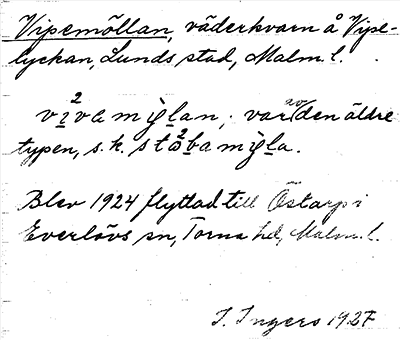 Vipemöllan, väderkvarn å Vipe-
lyckan, Lunds stad, Malm. l.
vi²va miǵlan; var av den äldre
typen, s. k. stå²ba miǵla.
Blev 1924 flyttad till Östarp i
Everlövs sn, Torna hd, Malm. l.
I. Ingers 1927